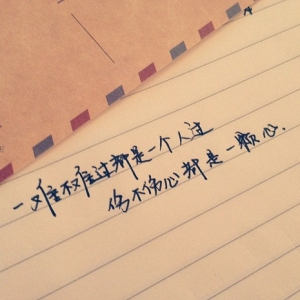 一难不难过都是一个人过
伤不伤心都是一颗心.